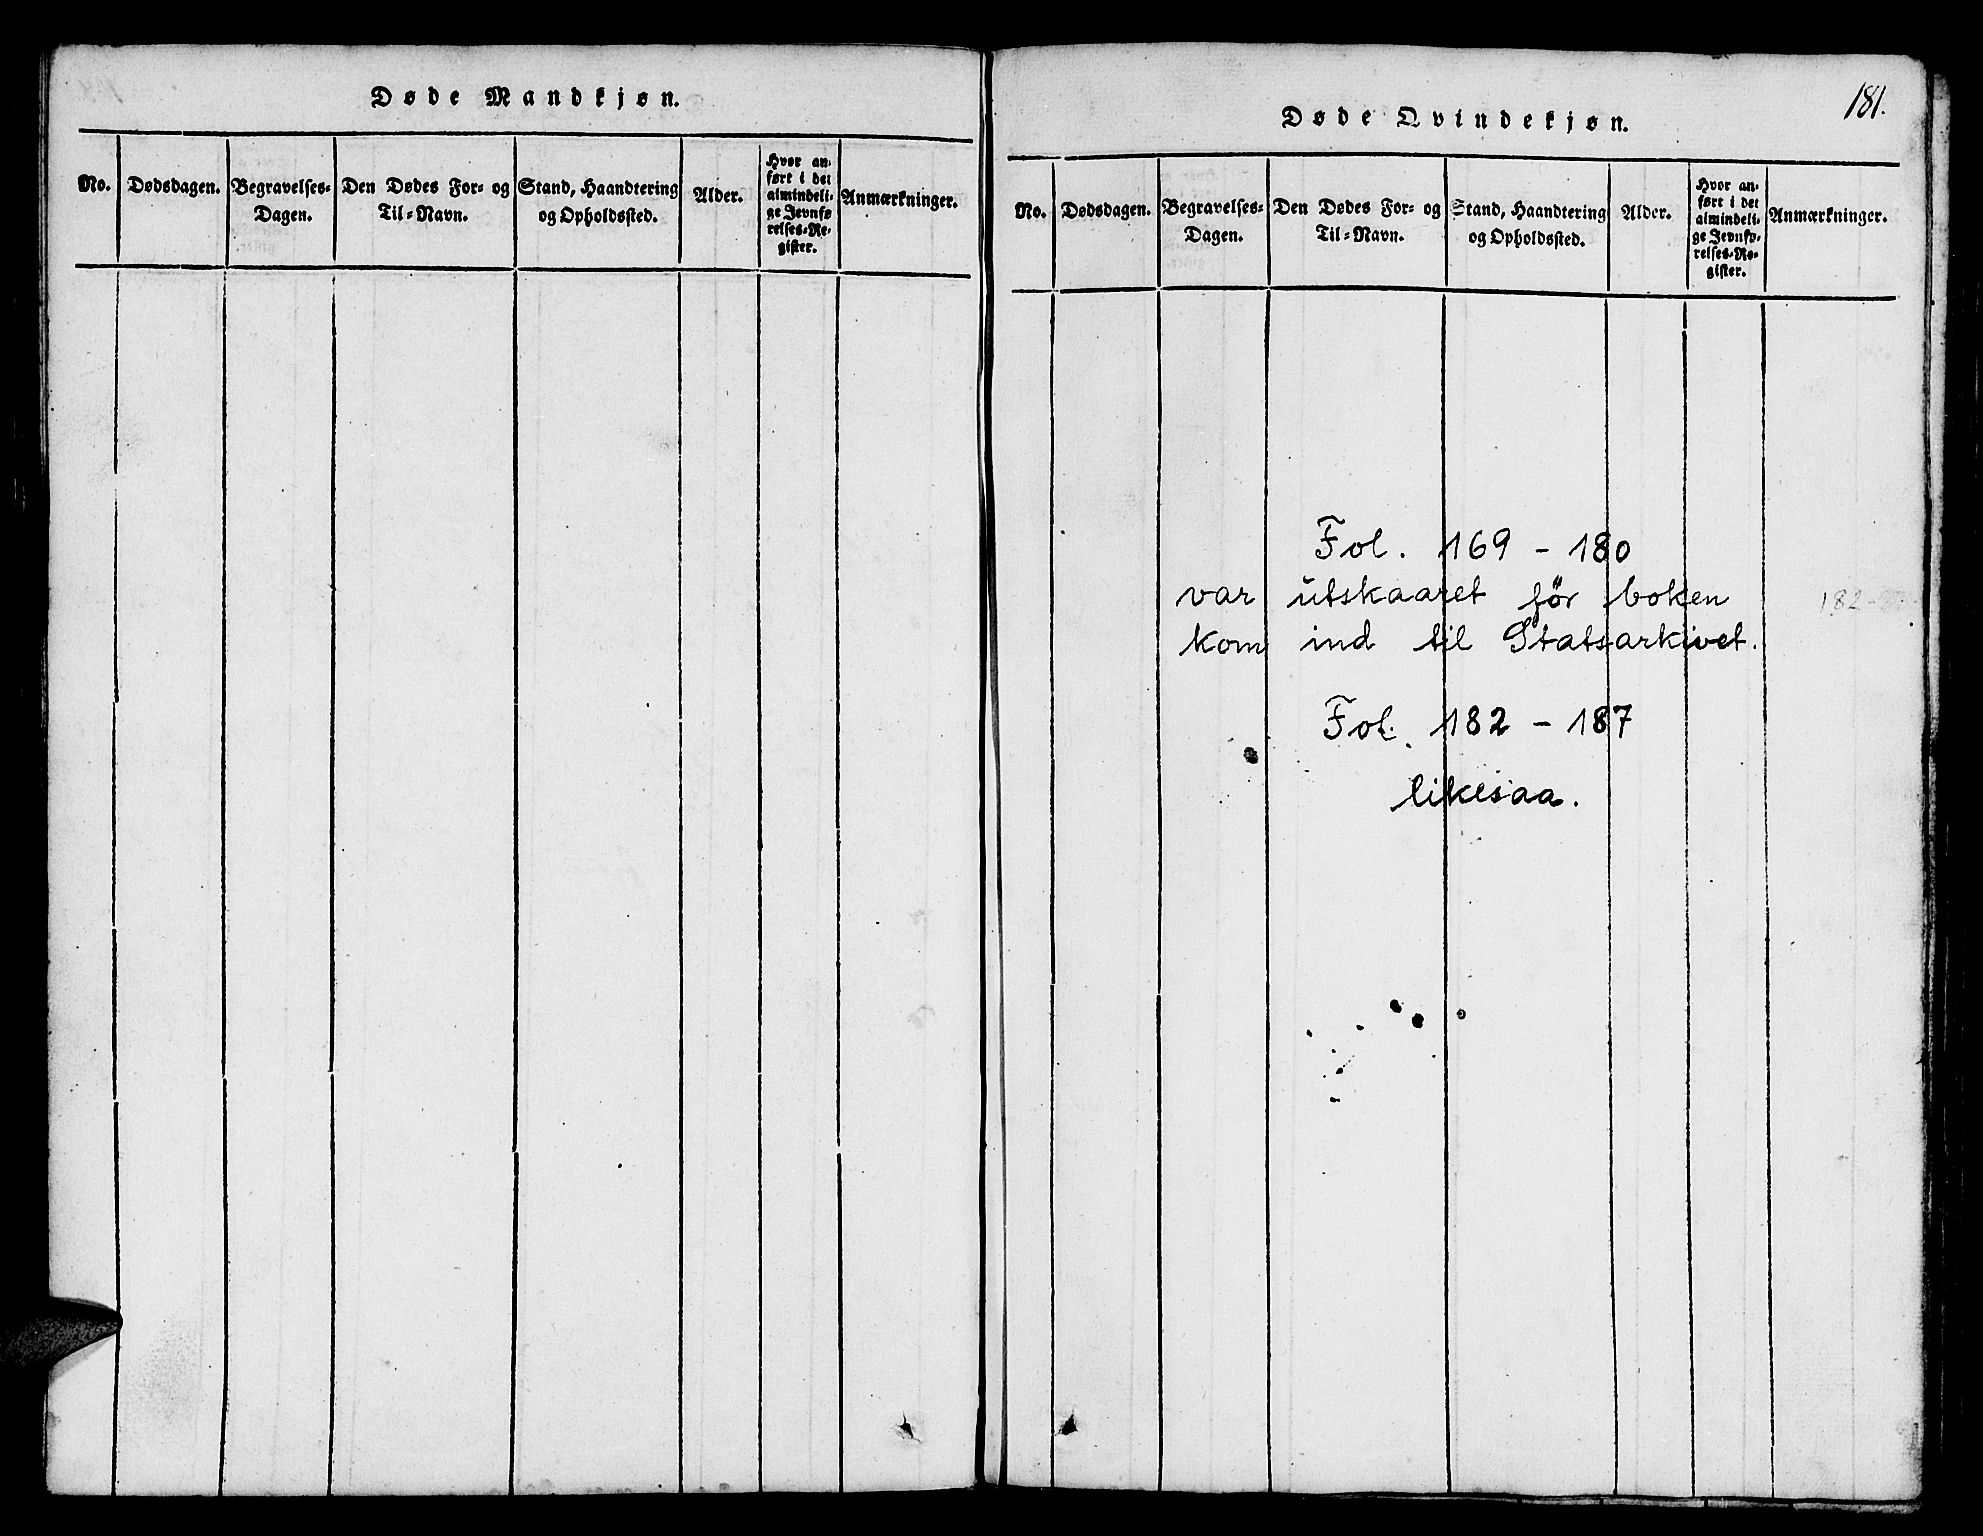 Døde Mandkjøn.
No.
Dødsdagen.
Begravelses-
Dagen.
Den Dødes For- og
Til-Navn.
Stand, Haandtering
og Opholdssted.
Alder.
Hvor an-
ført i det
almindeli-
ge Jevnfø
relses-Re-
gister.
Anmærkninger.
181.
Døde Qvindekjøn.
No.
Dødsdagen.
Begravelses-
Dagen.
Den Dødes For- og
Til-Navn.
Stand, Haandtering
og Opholdssted.
Alder.
Hvor an-
ført i det
almindeli-
ge Jevnfø-
relses-Re-
gister.
Anmærkninger.
Fol. 169 - 180
var utskaaret før boken
kom ind til Statsarkivet.
Fol. 182 - 187
likesaa.
182-